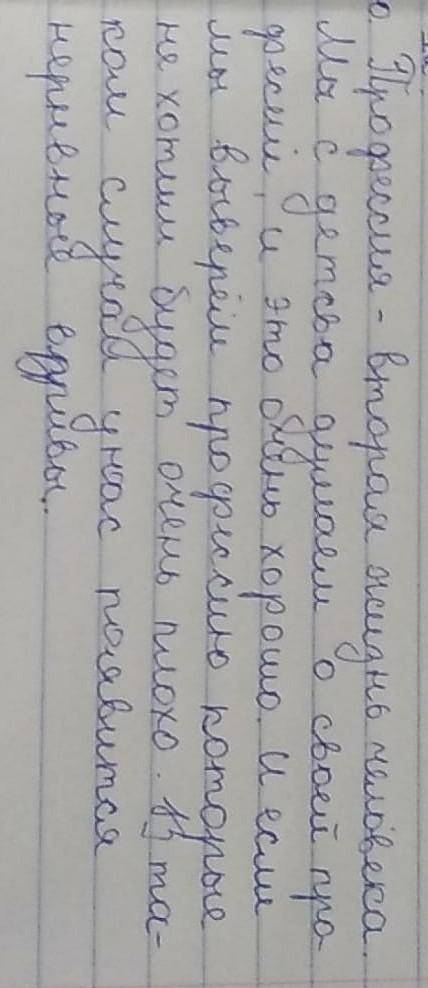 о. Профессия - вторая жизнь человека.
Мы с детсва думаем о своей про
фесии, и это очень хорошо. И если
мы выберем профессию которые
не хотим будет очень плохо. В та-
ком случае у нас появится
нервные срывы.